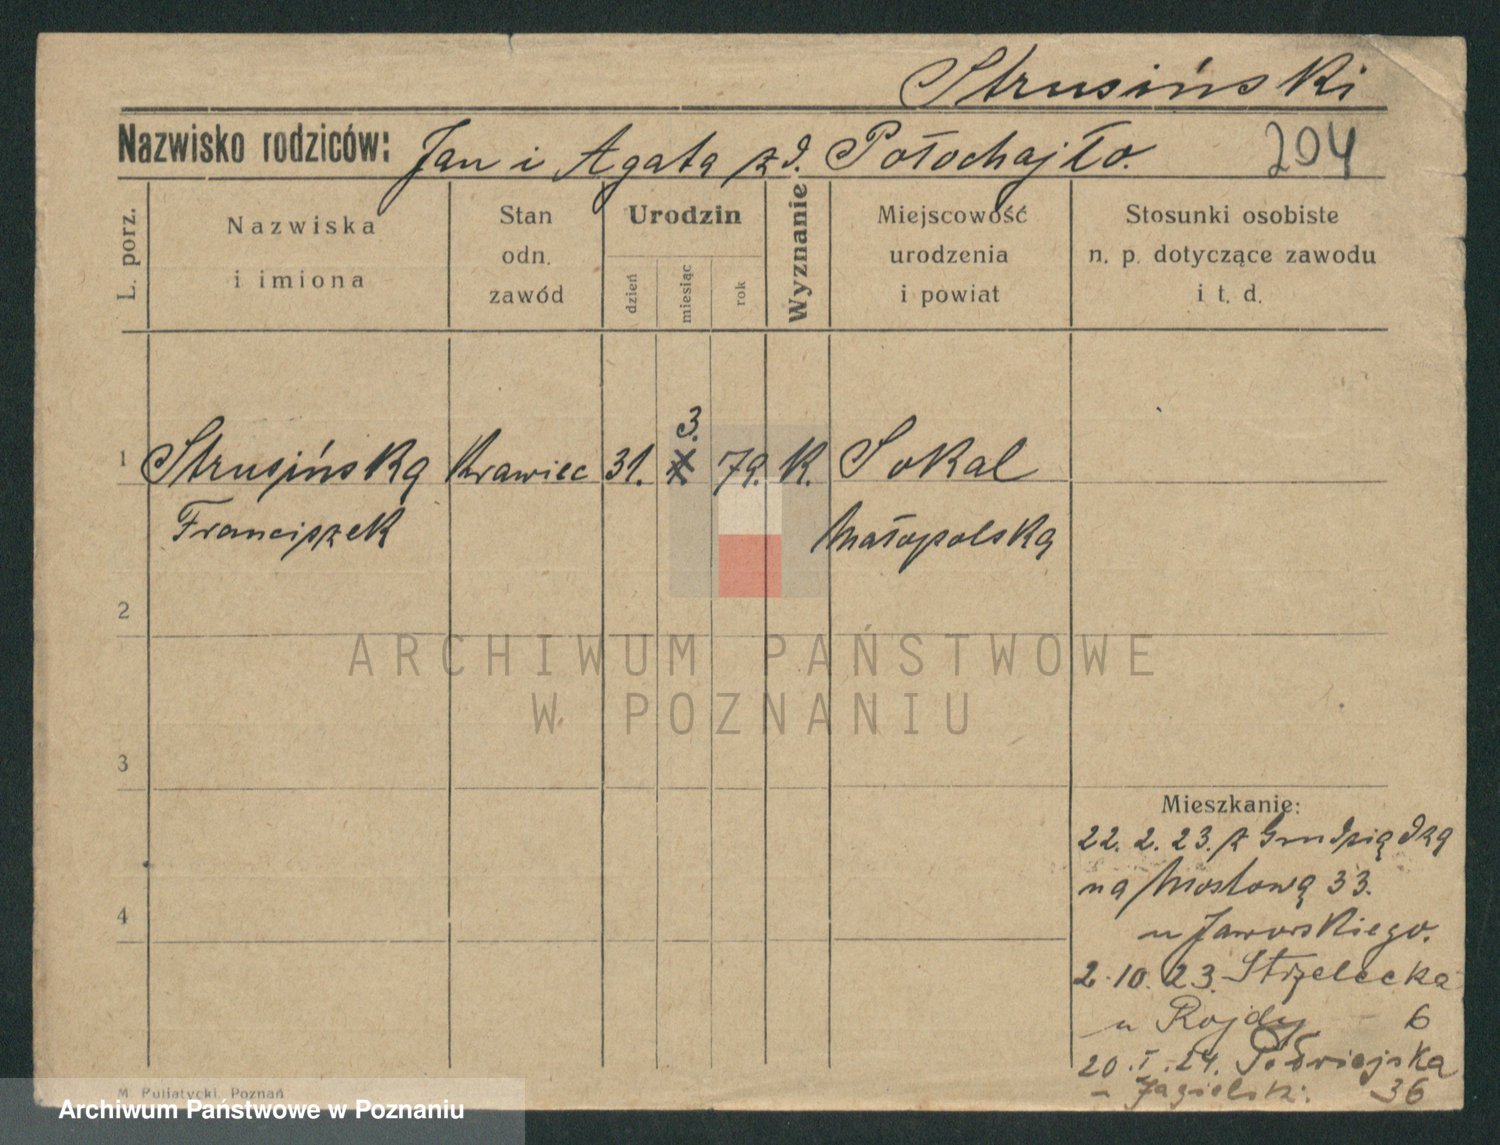 Strusiński
Nazwisko rodziców: Jan i Agata zd. Połochajło. 204
L. porz.
Nazwiska
i imiona
Stan
odn.
zawód
Urodzin
dzień
miesiąc
rok
Wyznanie
Miejscowość
urodzenia
i powiat
Stosunki osobiste
n. p. dotyczące zawodu
i t. d.
3.
1 Strusińska Krawiec 31. 79. K. Sokal
Franciszek Małopolska
2
ARCHIWUM PAŃSTWOWE
W POZNANIU
3
Mieszkanie:
22. 2. 23. z Grudziądza
na Mostową 33.
4
u Jaworskiego.
2 10. 23. Strzelecka
u Rojdy 6
20. I. 24. Półwiejska
36
M. Putiatycki, Poznań
Archiwum Państwowe w Poznaniu